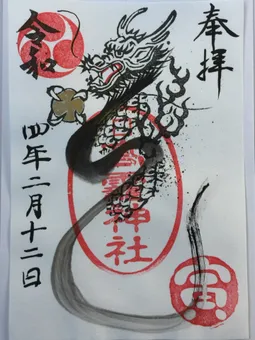 奉拝
神社
令和
四年二月十二日
寅